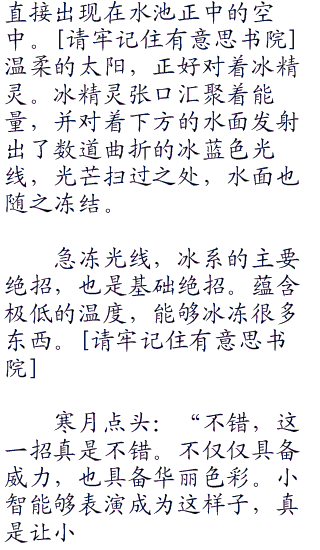 直接出现在水池正中的空
中。[请牢记住有意思书院]
温柔的太阳，正好对着冰精
灵。冰精灵张口汇聚着能
量，并对着下方的水面发射
出了数道曲折的冰蓝色光
线，光芒扫过之处，水面也
随之冻结。
急冻光线，冰系的主要
绝招，也是基础绝招。蕴含
极低的温度，能够冰冻很多
东西。[请牢记住有意思书
院]
寒月点头：“不错，这
一招真是不错。不仅仅具备
威力，也具备华丽色彩。小
智能够表演成为这样子，真
是让小